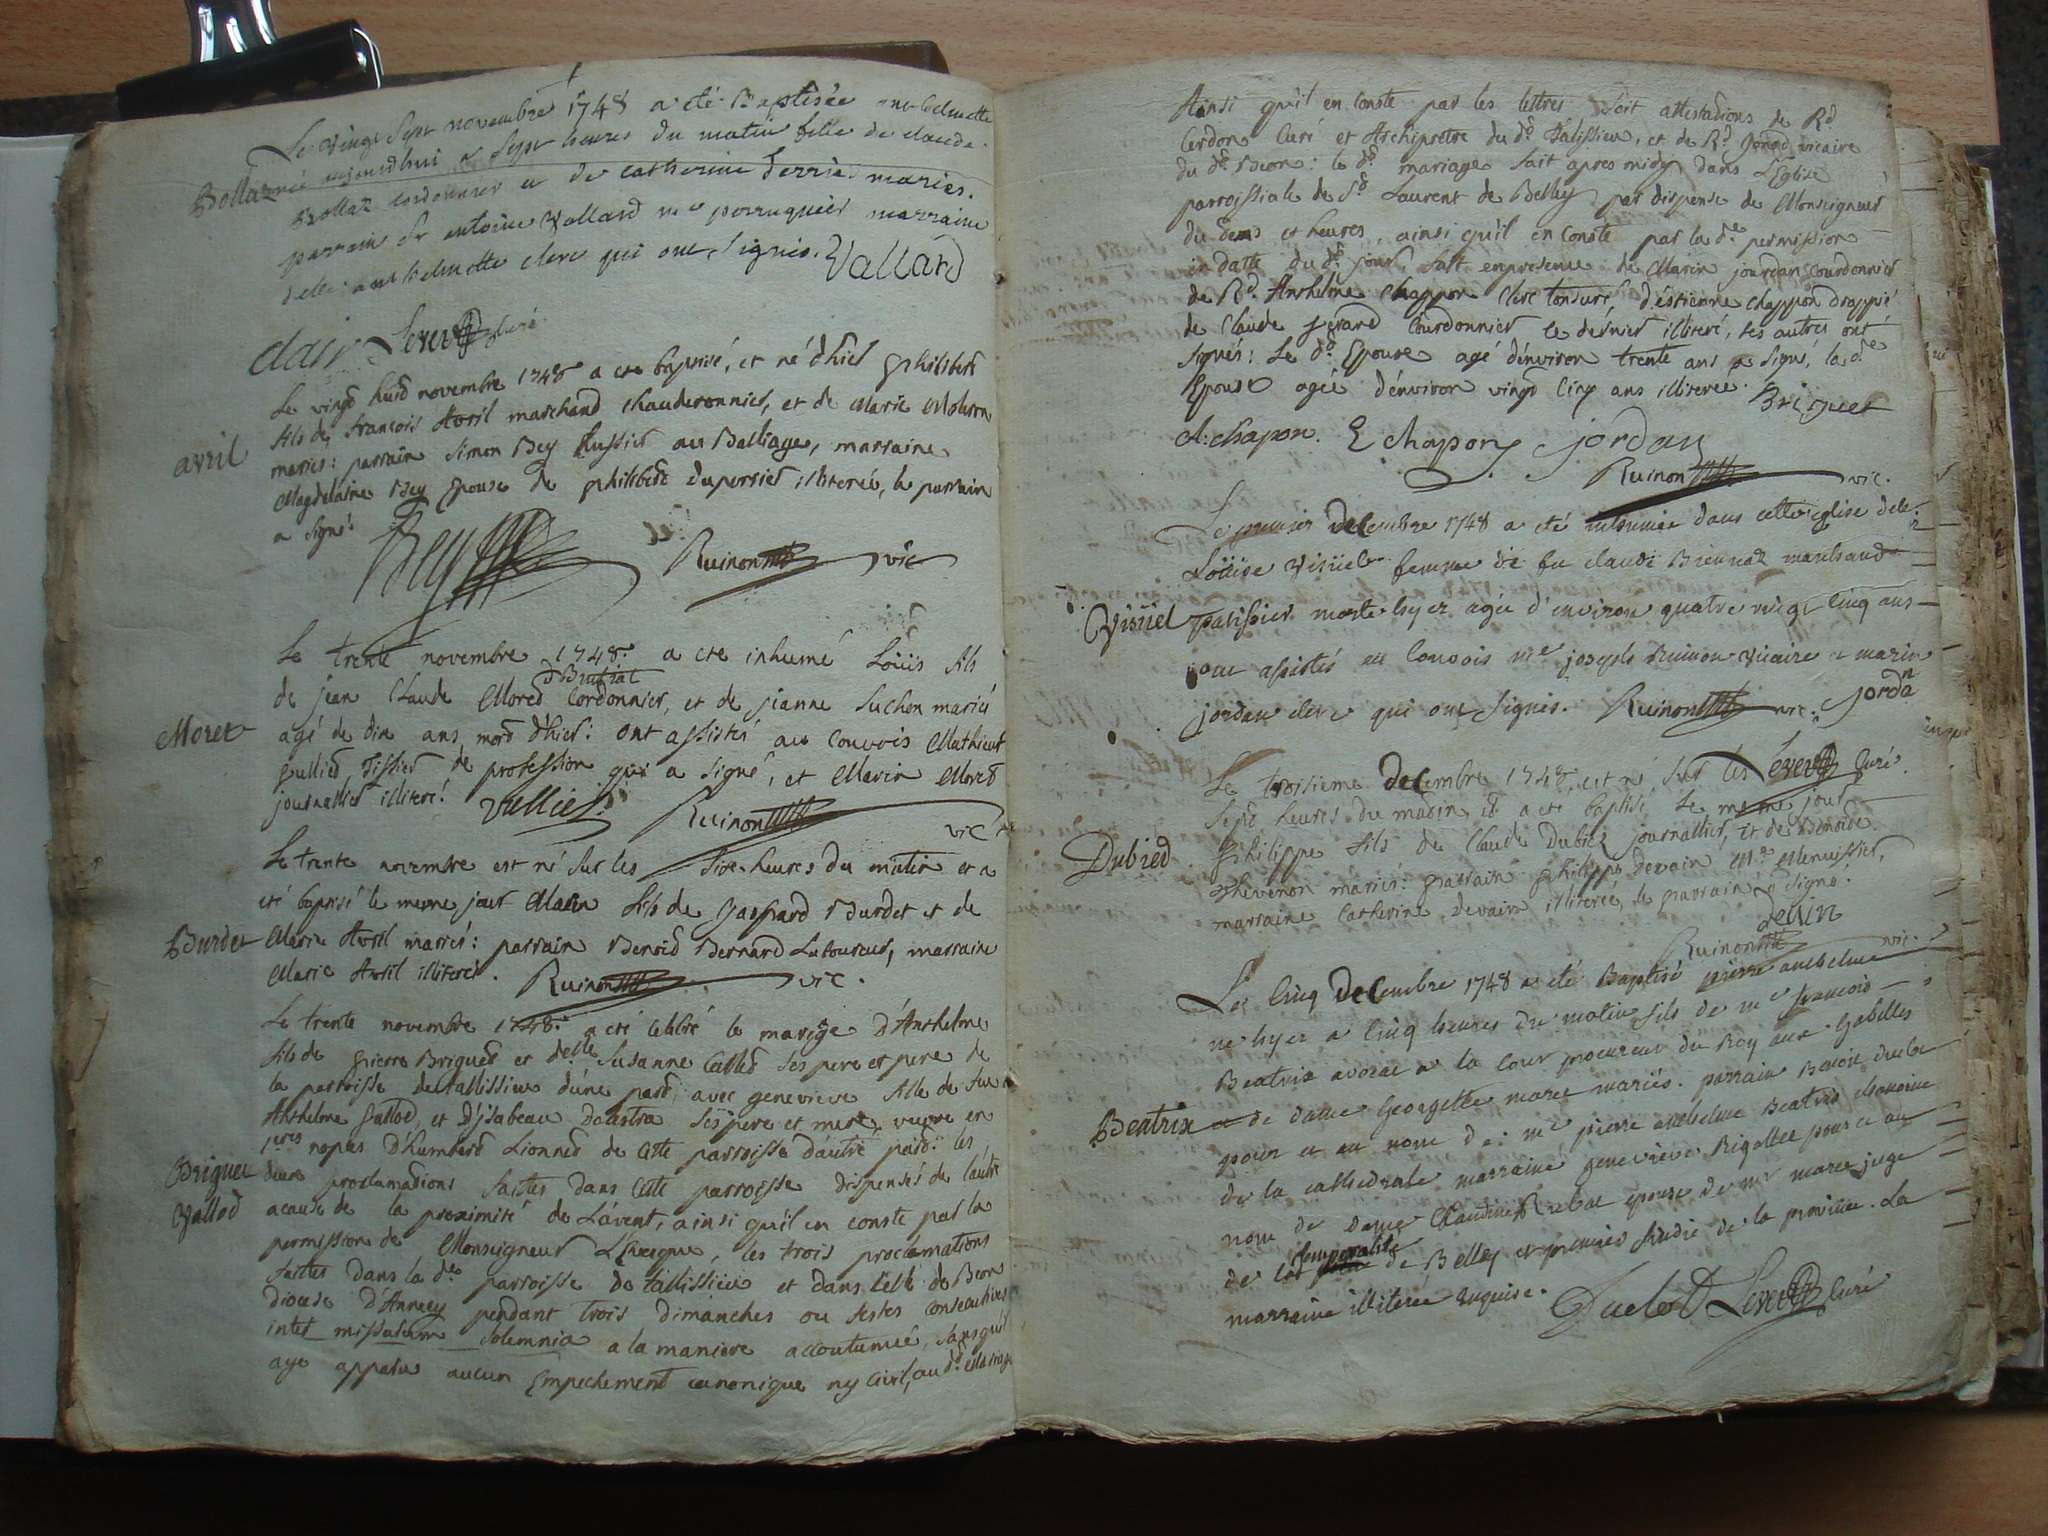 Le vingt sept novembre 1748 a été Baptisée anthelmette
Bollaz née aujourdhui a sept heures du matin fille de claude
Bollaz cordonnier et de catherine Perrié mariés.
parrain Sr antoine Vallard me perruquier marraine
delle anthelmette clerc qui ont signés. Vallard
clair Severd Curé
Le vingt huid novembre 1748 a ete baptisé, et né d'hier philibert
avril fils de françois Avril marchand chauderonnier, et de Marie Molson
mariés: parrain Simon Bey hussier au Balliage, marraine
Magdelaine Bey Epouse de philiberd Duperrier illiterée, le parrain
a signé
Bey Ruinon vic
Le trente novembre 1748. a ete inhumé Loüis fils
de jean Claude Mored Cordonnier, et de jeanne Suchon mariés
Moret agé de dix ans mord d'hier: ont assistés au Convois Mathieu
Vullied Tissier de profession qui a signé, et Marin Mored
journallier illiteré. Vulliet. Ruinon vic
Le trente novembre est né sur les six heures du matin et a
eté baptisé le meme jour Marin fils de Gaspard Burdet et de
Burdet Marie Avril mariés: parrain Benoid Bernard Laboureur, marraine
Marie Avril illiterés. Ruinon vic.
Le trente novembre 1748. a eté celebré le mariage d'Anthelme
fils de pierre Brigued et delle Susanne Cailled ses pere et mere de
la parroisse de tallissieu d'une pard, avec genevieve fille de feu
Anthelme Vallod, et D'jsabeau Dalastra ses pere et mere, veuve en
1eres nopces D'humberd Lionned de cette parroisse d'autre pard: les
Briguet deux proclamations faites dans cette parroisse dispensés de l'autre
Vallod acause de la proximité de L'avent, ainsi qu'il en conste par la
permission de Monseigneur L'Eveque, les trois proclamations
faites dans la de parroisse de tallissieu et dans celle de Beon
diocese d'Annecy pendant trois dimanches ou festes consecutives
inter missarum solemnia a la maniere accoutumée, sans qu'il
aye apparu aucun Empechement canonique ny Civil, au d. mariage
Ainsi qu'il en Conste par les lettres soit attestations de Rd
Cerdon Curé et Archiprêtre du d. Talissieu, et de Rd jonod vicaire
du d. Beon: le d. mariage fait apres midy dans L'Eglise
parroissiale de St Laurent de Belley par dispense de Monseigneur
du tems et heures, ainsi qu'il en Conste par la de permission
en datte du d. jour. fait en presence de Marin jourdan Courdonnier
de Rd. Anthelme Chappon Clerc tonsuré, d'éstienne Chappon drappié
de Claude gerand Courdonnier le dernier illiteré, les autres ont
signés: Le d. Epoux agé d'environ trente ans a signé, la de
Epouse agée d'environ vingt cinq ans illiteree. Briguet
A. chapon. E chapon jordan
Ruinon vic.
Le premier Decembre 1748 a eté inhumée dans cette eglise delle
Loüise Visüel femme de feu claude Brennaz marchand
Visüel patissier morte hyer agée d'environ quatre vingt cinq ans
ont assistés au Convois me joseph Ruinon vicaire et marin
jordan clerc qui ont signés. Ruinon vic. jordan
Severd Curé.
Le troisieme Decembre 1748, est né sur les
sept heures du matin et a ete baptisé le meme jour
Dubied philippe fils de Claude Dubiez journallier, et de Benoite
Thevenon mariés: parrain philippe Devain Me Menuissier,
marraine Catherine devain illiterée, le parrain a signé.
devin
Ruinon vic.
Le Cinq Decembre 1748 a eté Baptisé pierre anthelme
né hyer a Cinq heures du matin fils de me françois
Beatrix avocat a la Cour procureur du Roy aux Gabelles
Beatrix et de dame Georgette maree mariés. parrain Benoit duclot
pour et au nom de: me pierre anthelme Beatrix chanoine
de la cathedrale marraine genevieve Rigollet pour et au
nom de dame Claudine Rubat epouse de mr maree juge
de la temporalité de Belley et premier sindic de la province. La
marraine illiterée enquise. Duclot Severd Curé